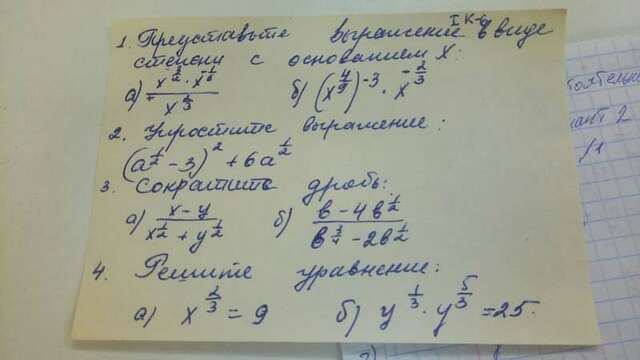 I к-в
1. Представьте выражение в виде
степени с основанием x:
а) (x^{2/3} · x^{-1/6}) / x^{2/3} б) (x^{4/9})^{-3} · x^{-2/3}
2. Упростите выражение:
(a^{1/2} - 3)^2 + 6a^{1/2}
3. Сократите дробь:
а) (x - y) / (x^{1/2} + y^{1/2}) б) (b - 4b^{1/2}) / (b^{3/4} - 2b^{1/2})
4. Решите уравнение:
а) x^{2/3} = 9 б) y^{1/3} · y^{5/3} = 25.